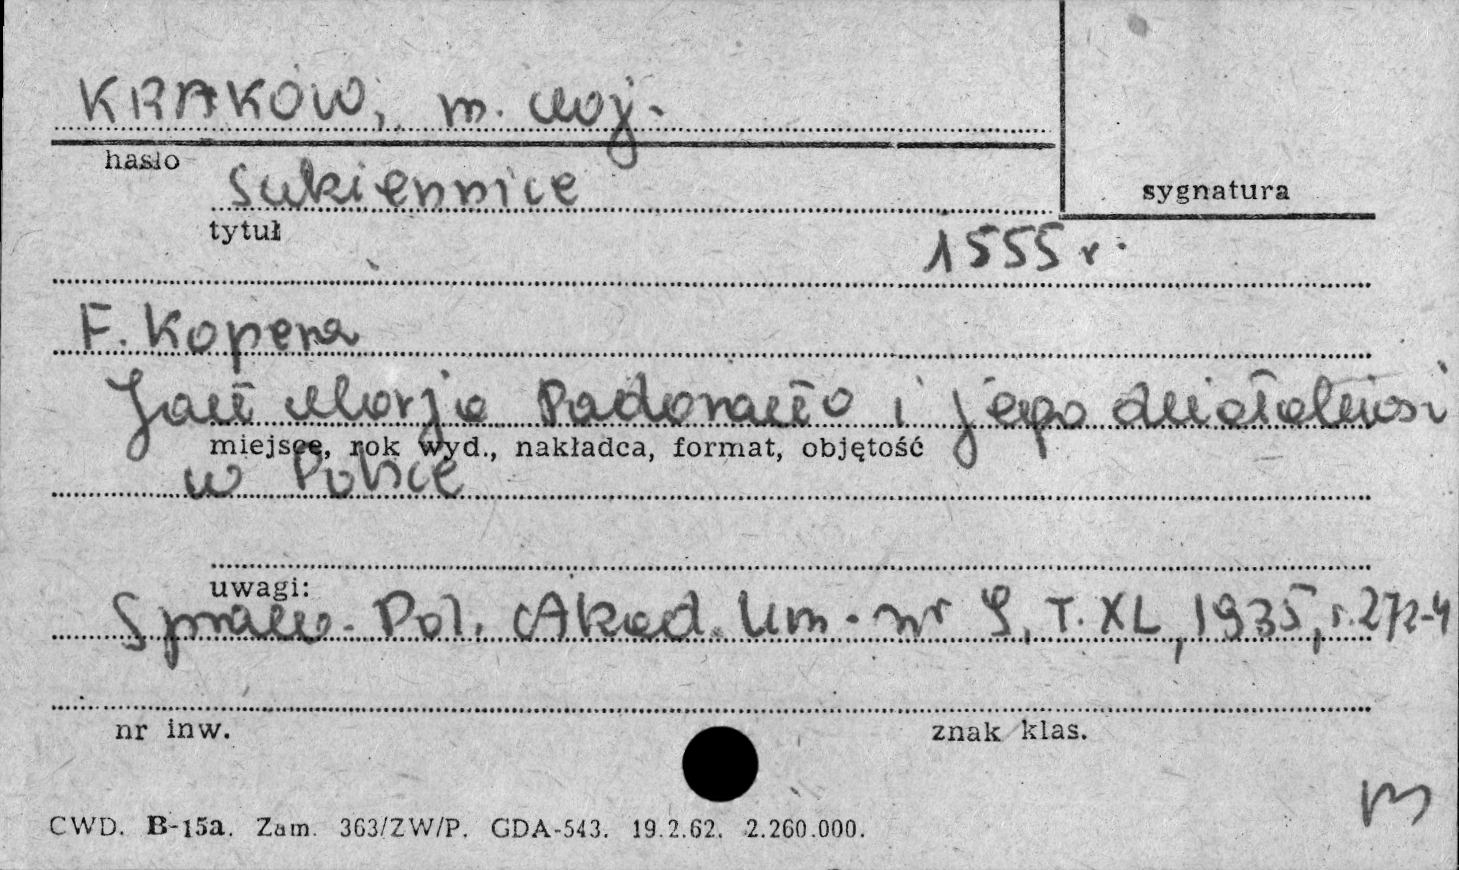 KRAKÓW, m. woj.
hasło
Sukiennice
sygnatura
tytuł
1555 r.
F. Kopera
Jan Marja Padovano i jego działalność
miejsce, rok wyd., nakładca, format, objętość
w Polsce
uwagi:
Spraw. Pol. Akad. Um. nr 9, T. XL, 1935, s. 272-4
nr inw.
znak klas.
m
CWD. B-15a. Zam. 363/ZW/P. GDA-543. 19.2.62. 2.260.000.